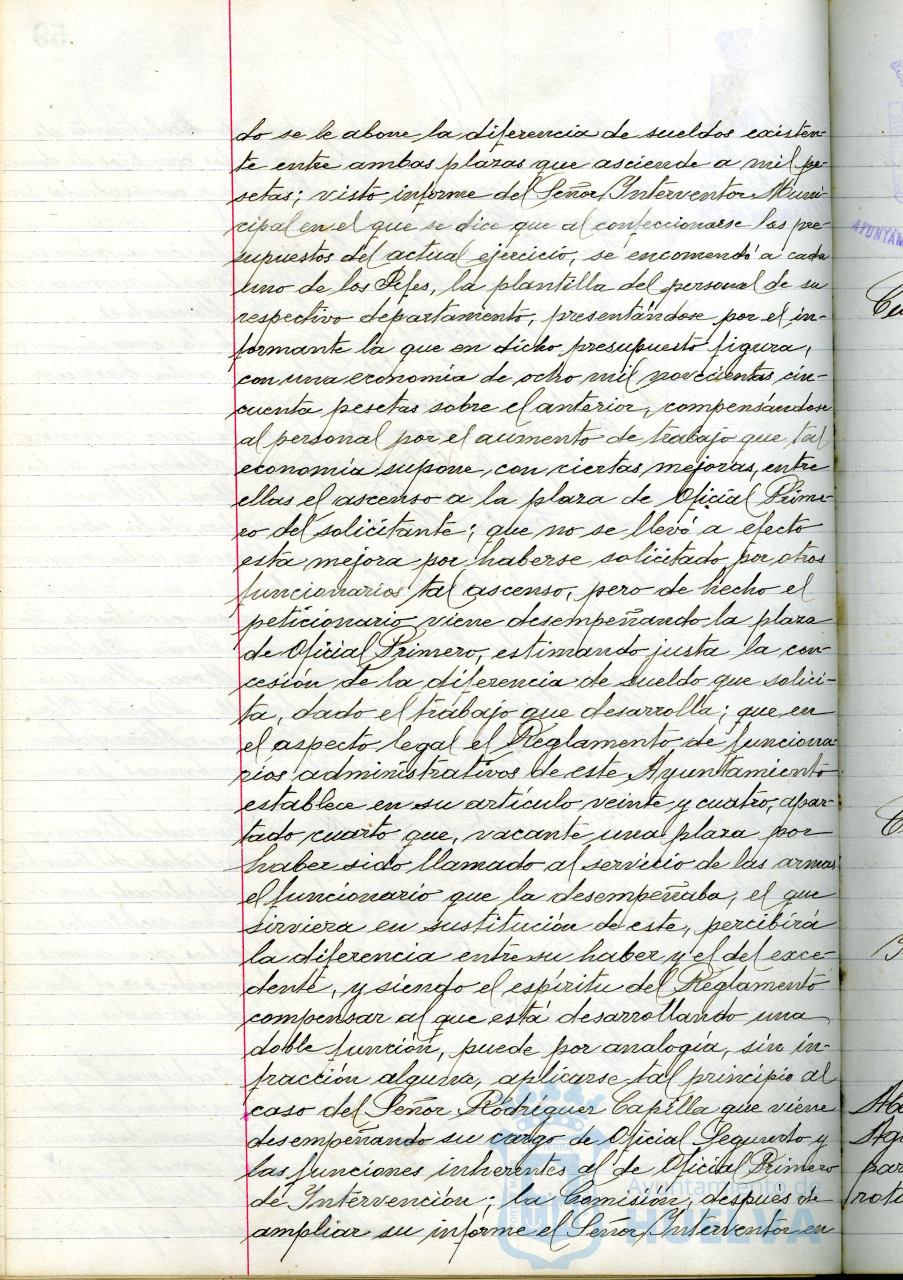 do se le abone la diferencia de sueldos existen-
te entre ambas plazas que asciende a mil pe-
setas; visto informe del Señor Interventor Muni-
cipal en el que se dice que al confeccionarse los pre-
supuestos del actual ejercicio, se encomendó a cada
uno de los Jefes, la plantilla del personal de su
respectivo departamento, presentándose por el in-
formante la que en dicho presupuesto figura,
con una economía de ocho mil novecientas cin-
cuenta pesetas sobre el anterior, compensándose
al personal por el aumento de trabajo que tal
economía supone, con ciertas mejoras, entre
ellas el ascenso a la plaza de Oficial Prime-
ro del solicitante; que no se llevó a efecto
esta mejora por haberse solicitado por otros
funcionarios tal ascenso, pero de hecho el
peticionario viene desempeñando la plaza
de Oficial Primero, estimando justa la con-
cesión de la diferencia de sueldo que solici-
ta, dado el trabajo que desarrolla; que en
el aspecto legal el Reglamento de funciona-
rios administrativos de este Ayuntamiento
establece en su artículo veinte y cuatro, apar-
tado cuarto que, vacante una plaza por
haber sido llamado al servicio de las armas
el funcionario que la desempeñaba, el que
sirviera en sustitución de este, percibirá
la diferencia entre su haber y el del exce-
dente, y siendo el espíritu del Reglamento
compensar al que está desarrollando una
doble función, puede por analogía, sin in-
fracción alguna, aplicarse tal principio al
caso del Señor Rodríguez Capilla que viene
desempeñando su cargo de Oficial Segundo y
las funciones inherentes al de Oficial Primero
de Intervención; la Comisión, después de
ampliar su informe el Señor Interventor en
Ayuntamiento de
HUELVA